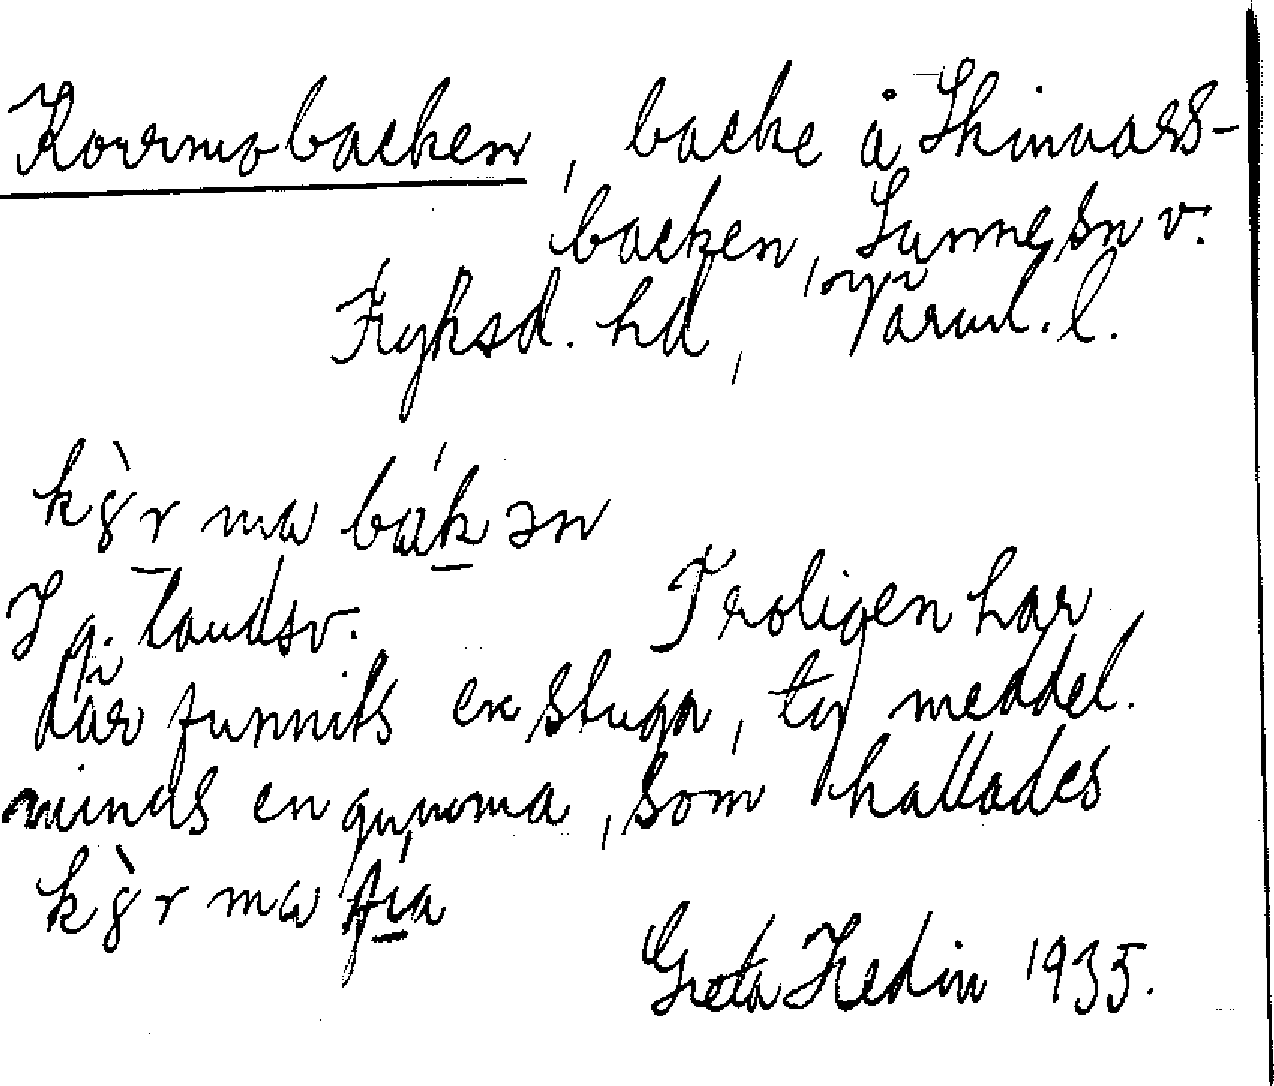 Kormobacken, backe å Skinnars-
backen, Sunne sn v.
Fryksd. hd, Värml. l.
I g. landsv. Troligen har
där funnits en stuga, ty meddel.
minds en gumma, som kallades
Greta Hedin 1935.